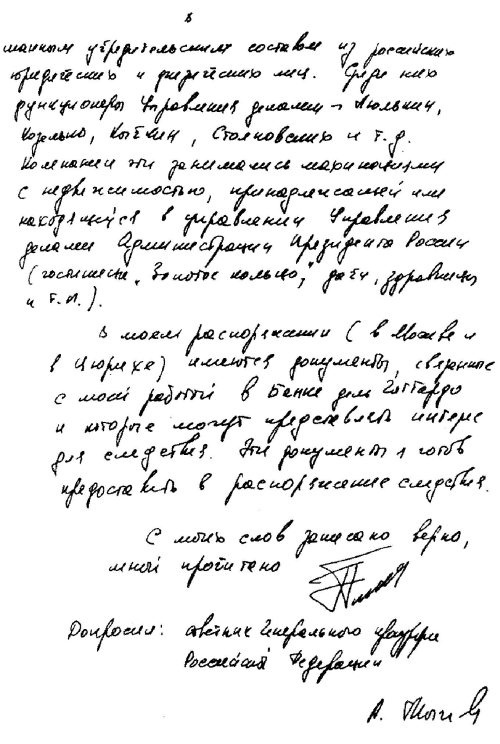 8
шанным учредительским составом из российских
юридических и физических лиц. Среди них
функционеры Управления делами – Люлькин,
Козелько, Кыткин, Столповских и т.д.
Компании эти занимались махинациями
с недвижимостью, принадлежащей или
находящейся в управлении Управления
делами Администрации Президента России
(гостиница "Золотое кольцо", дачи, здравницы
и т.п.).
В моем распоряжении (в Москве и
в Цюрихе) имеются документы, связанные
с моей работой в Банке дель Готтардо
и которые могут представлять интерес
для следствия. Эти документы я готов
предоставить в распоряжение следствия.
С моих слов записано верно,
мной прочитано
Допросил: советник Генерального прокурора
Российской Федерации